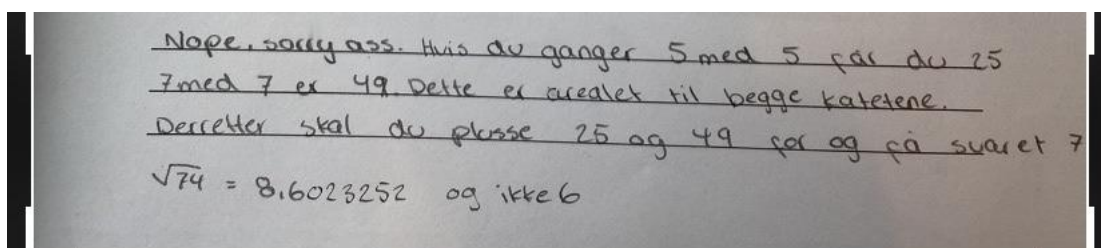 Nope, sorry ass. Hvis du ganger 5 med 5 får du 25
7 med 7 er 49. Dette er arealet til begge katetene.
Derretter skal du plusse 25 og 49 for og få svaret 7
√74 = 8,6023252 og ikke 6